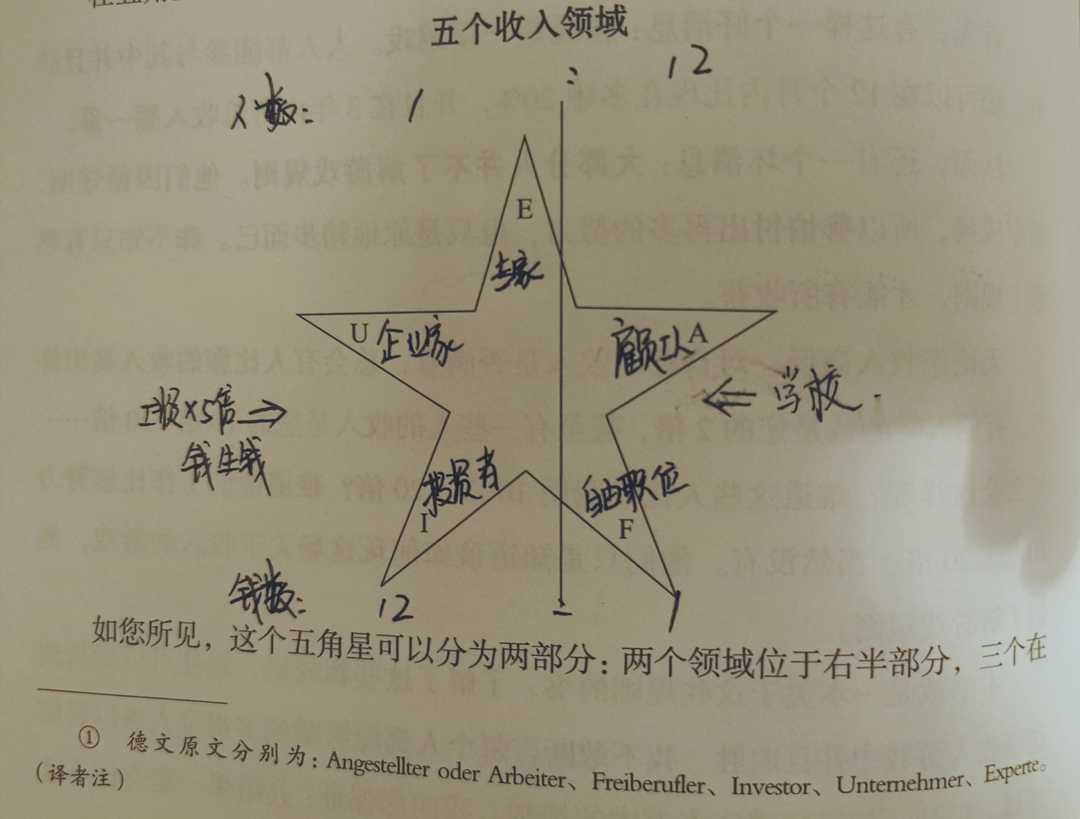 五个收入领域
人数： 1 : 12
E
专家
U 企业家
雇员工人 A
工资×5倍 ⇒
⇐ 学校.
钱生钱
投资者
自由职位
I
F
钱数： 12 : 1
如您所见，这个五角星可以分为两部分：两个领域位于右半部分，三个在
① 德文原文分别为：Angestellter oder Arbeiter、Freiberufler、Investor、Unternehmer、Experte。
（译者注）